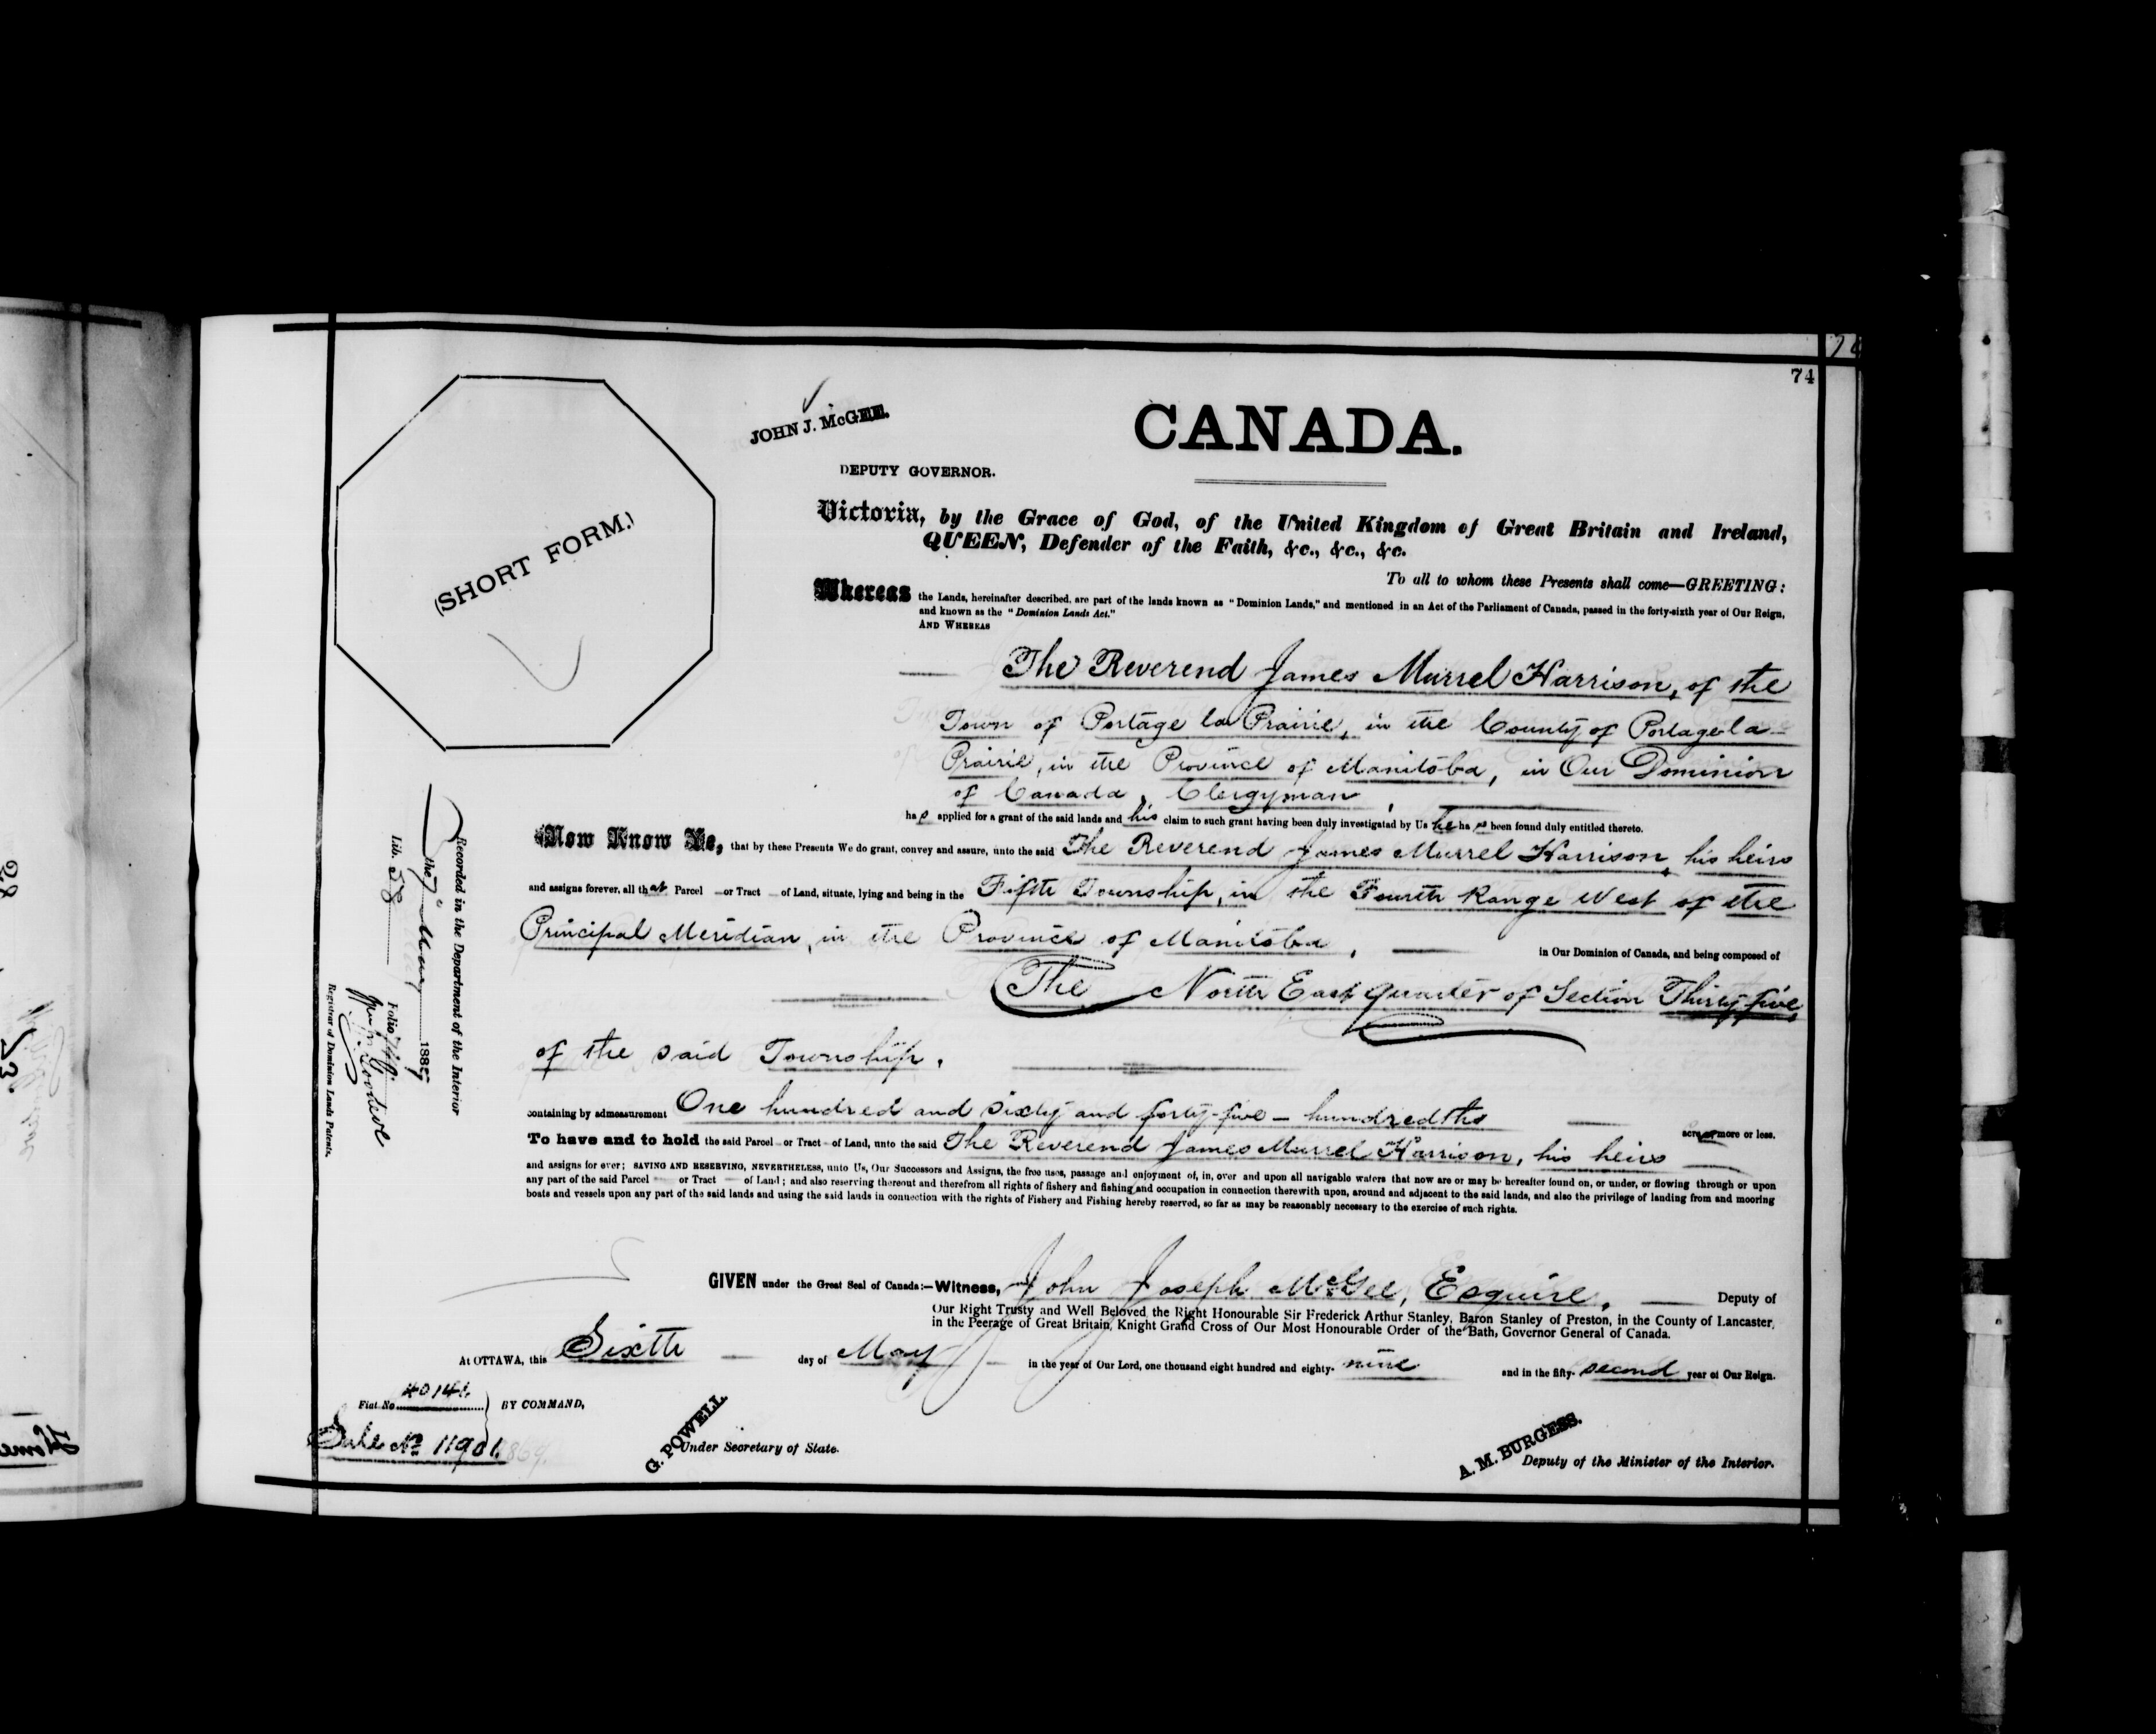 74
JOHN J. McGEE.
DEPUTY GOVERNOR.
CANADA.
(SHORT FORM.)
Victoria, by the Grace of God, of the United Kingdom of Great Britain and Ireland,
QUEEN, Defender of the Faith, &c., &c., &c.
To all to whom these Presents shall come—GREETING:
Whereas the Lands, hereinafter described, are part of the lands known as "Dominion Lands," and mentioned in an Act of the Parliament of Canada, passed in the forty-sixth year of Our Reign,
and known as the "Dominion Lands Act."
AND WHEREAS
The Reverend James Murrel Harrison, of the
Town of Portage la Prairie, in the County of Portage la
Prairie, in the Province of Manitoba, in Our Dominion
of Canada, Clergyman,
has applied for a grant of the said lands and his claim to such grant having been duly investigated by Us he has been found duly entitled thereto.
Now Know Ye, that by these Presents We do grant, convey and assure, unto the said The Reverend James Murrel Harrison, his heirs
and assigns forever, all that Parcel or Tract of Land, situate, lying and being in the Fifth Township, in the Fourth Range West of the
Principal Meridian, in the Province of Manitoba, in Our Dominion of Canada, and being composed of
The North East quarter of Section Thirty-five,
of the said Township.
containing by admeasurement One hundred and sixty and forty-five-hundredths acres more or less.
To have and to hold the said Parcel or Tract of Land, unto the said The Reverend James Murrel Harrison, his heirs
and assigns for ever; SAVING AND RESERVING, NEVERTHELESS, unto Us, Our Successors and Assigns, the free uses, passage and enjoyment of, in, over and upon all navigable waters that now are or may be hereafter found on, or under, or flowing through or upon
any part of the said Parcel or Tract of Land; and also reserving thereout and therefrom all rights of fishery and fishing and occupation in connection therewith upon, around and adjacent to the said lands, and also the privilege of landing from and mooring
boats and vessels upon any part of the said lands and using the said lands in connection with the rights of Fishery and Fishing hereby reserved, so far as may be reasonably necessary to the exercise of such rights.
GIVEN under the Great Seal of Canada:—Witness, John Joseph McGee, Esquire, Deputy of
Our Right Trusty and Well Beloved the Right Honourable Sir Frederick Arthur Stanley, Baron Stanley of Preston, in the County of Lancaster,
in the Peerage of Great Britain, Knight Grand Cross of Our Most Honourable Order of the Bath, Governor General of Canada.
At OTTAWA, this Sixth day of May in the year of Our Lord, one thousand eight hundred and eighty-nine and in the fifty-second year of Our Reign.
Fiat No. 40141.
BY COMMAND,
Sale No 11901.
G. POWELL
Under Secretary of State.
A. M. BURGESS.
Deputy of the Minister of the Interior.
Recorded in the Department of the Interior
the 7th May 1889
Lib. 58 Folio 74
Registrar of Dominion Lands Patents.